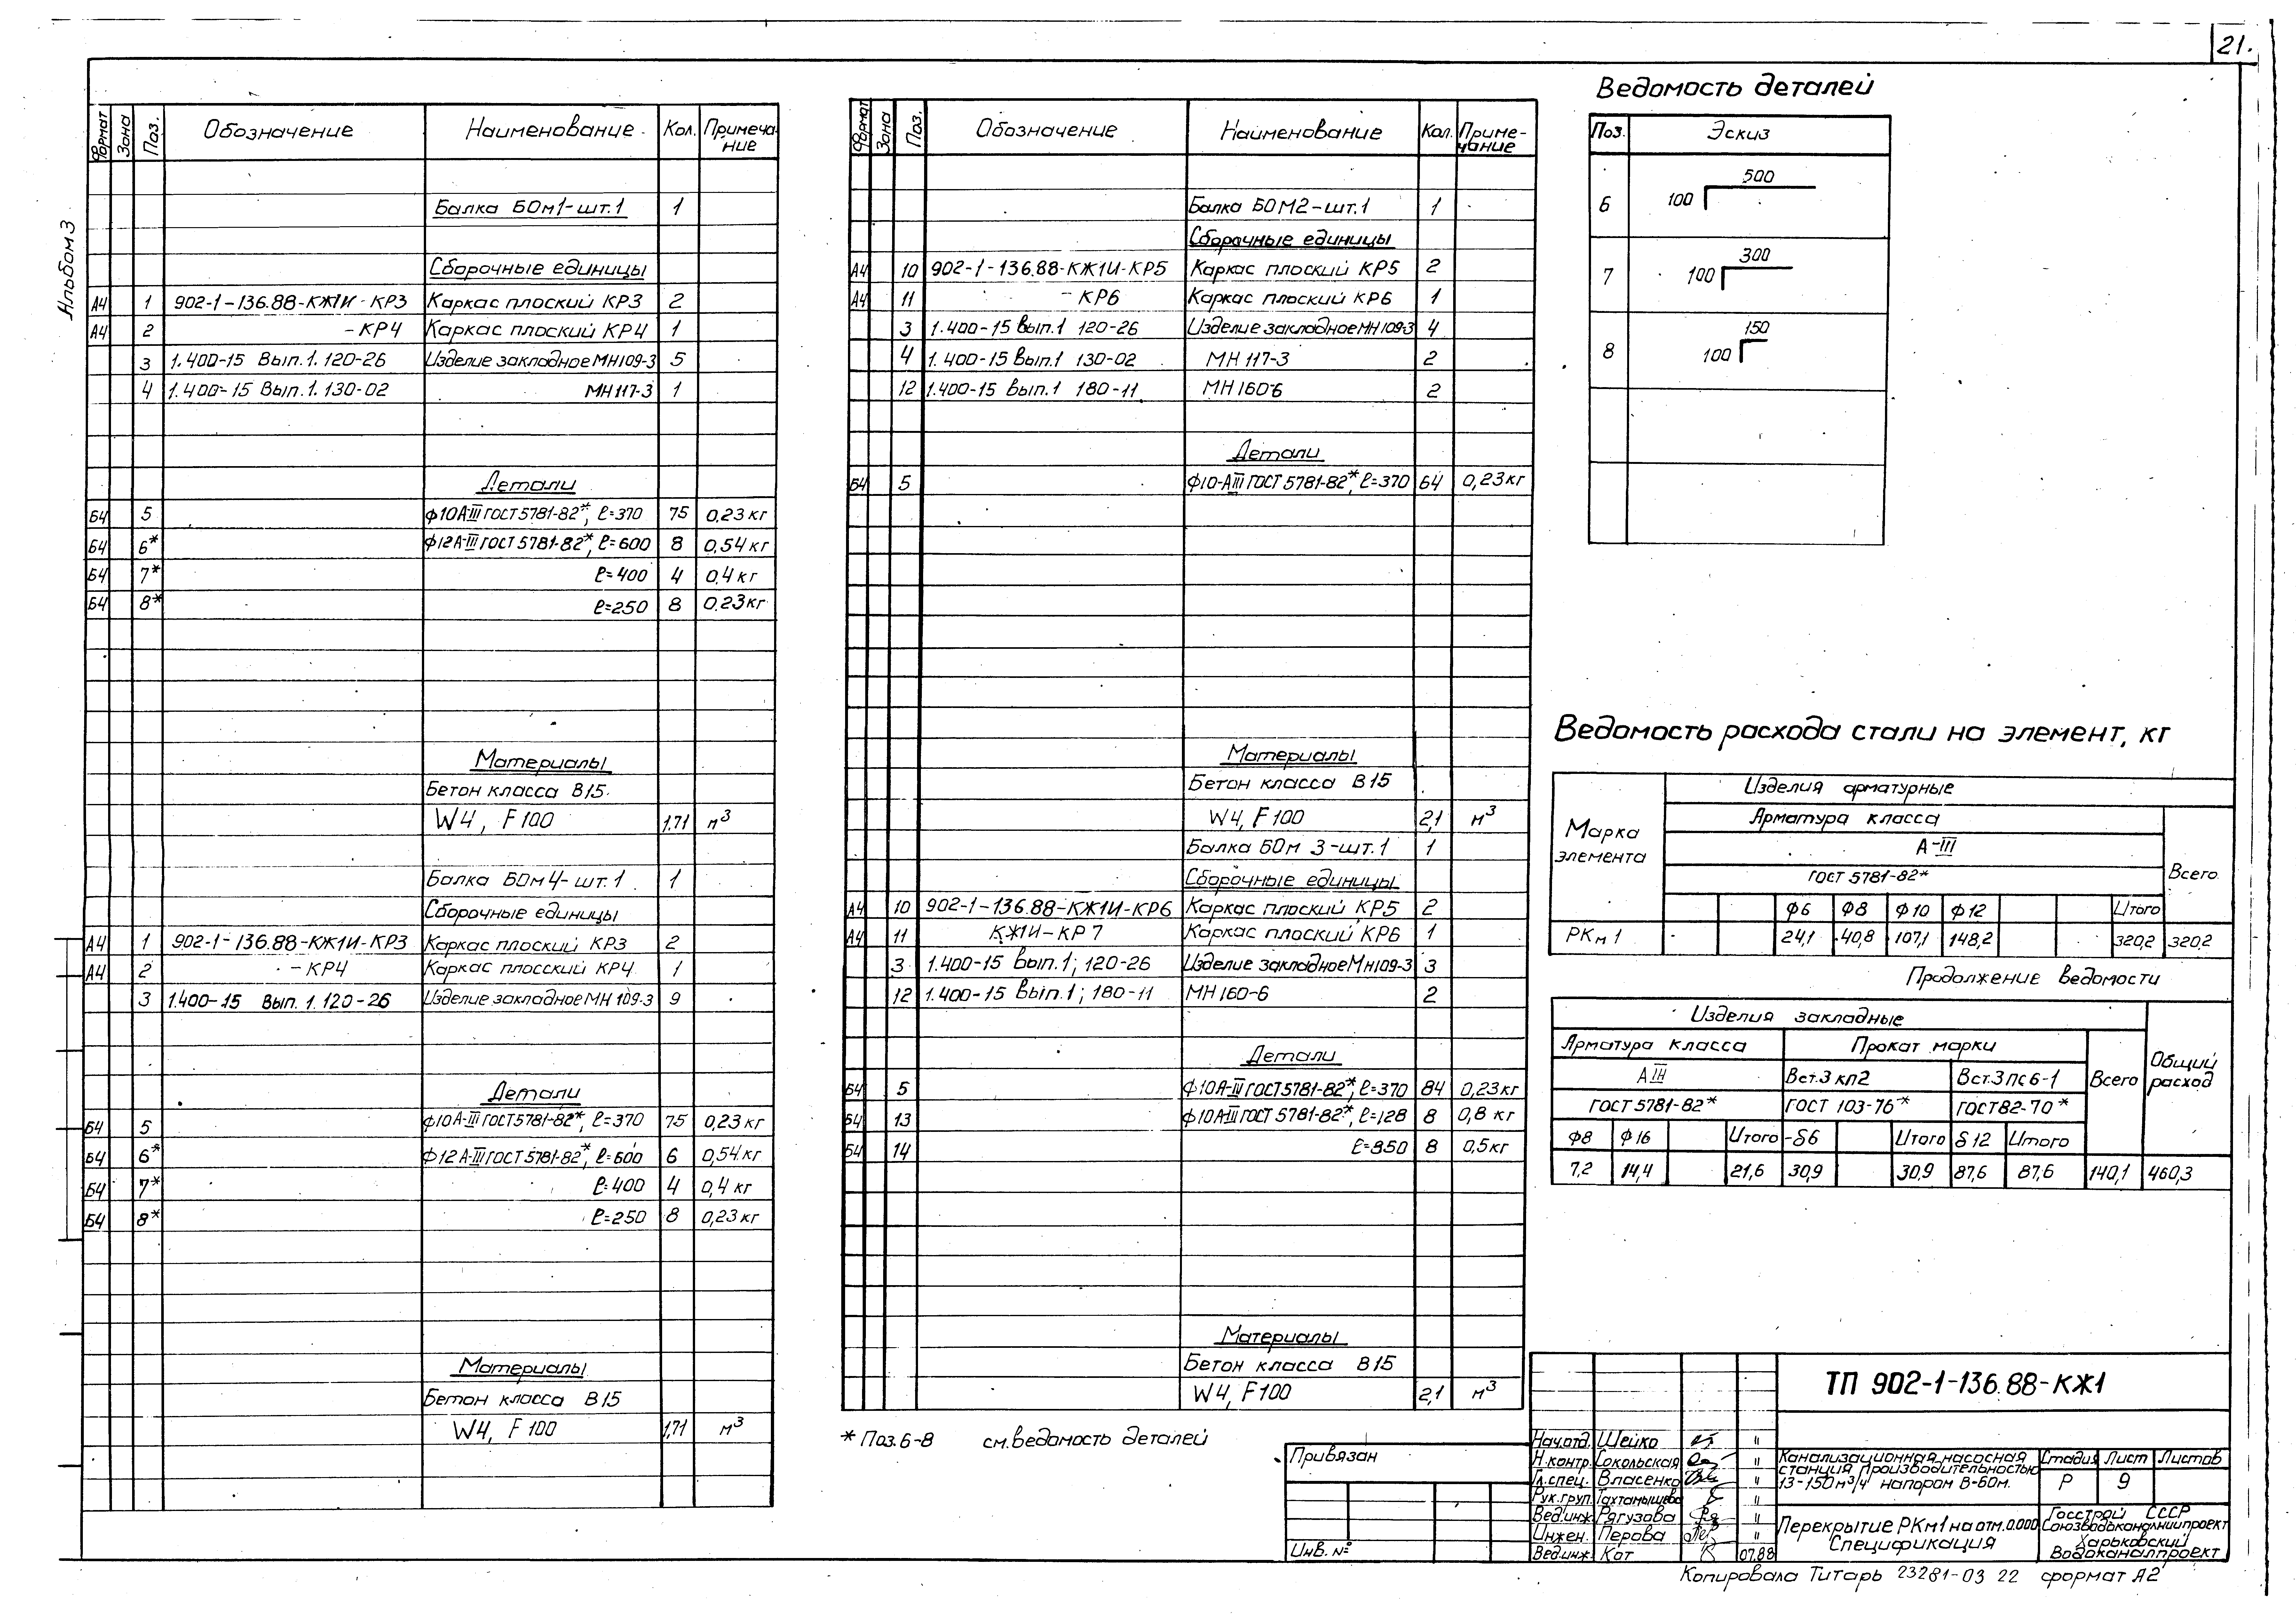 21.
Альбом 3
Формат Зона Поз. Обозначение Наименование Кол. Примечание
Балка БОм1-шт.1 1
Сборочные единицы
А4 1 902-1-136.88-КЖ1И-КР3 Каркас плоский КР3 2
А4 2 -КР4 Каркас плоский КР4 1
3 1.400-15 Вып.1. 120-26 Изделие закладное МН109-3 5
4 1.400-15 Вып.1. 130-02 МН117-3 1
Детали
Б4 5 ф10А-III ГОСТ 5781-82*, ℓ=370 75 0,23 кг
Б4 6* ф12А-III ГОСТ 5781-82*, ℓ=600 8 0,54 кг
Б4 7* ℓ=400 4 0,4 кг
Б4 8* ℓ=250 8 0.23 кг
Материалы
Бетон класса В15.
W4, F100 1.71 м³
Балка БОм4-шт.1 1
Сборочные единицы
А4 1 902-1-136.88-КЖ1И-КР3 Каркас плоский КР3 2
А4 2 -КР4 Каркас плосский КР4 1
3 1.400-15 Вып. 1. 120-26 Изделие закладное МН 109-3 9
Детали
Б4 5 ф10А-III ГОСТ 5781-82*, ℓ=370 75 0,23 кг
Б4 6* ф12А-III ГОСТ 5781-82*, ℓ=600 6 0,54 кг
Б4 7* ℓ=400 4 0,4 кг
Б4 8* ℓ=250 8 0,23 кг
Материалы
Бетон класса В15
W4, F100 1,71 м³
Формат Зона Поз. Обозначение Наименование Кол. Примечание
Балка БОМ2-шт.1 1
Сборочные единицы
А4 10 902-1-136.88-КЖ1И-КР5 Каркас плоский КР5 2
А4 11 -КР6 Каркас плоский КР6 1
3 1.400-15 Вып.1 120-26 Изделие закладное МН109-3 4
4 1.400-15 Вып.1 130-02 МН117-3 2
12 1.400-15 Вып.1 180-11 МН160-6 2
Детали
Б4 5 ф10-АIII ГОСТ 5781-82*, ℓ=370 64 0,23 кг
Материалы
Бетон класса В15
W4, F100 2,1 м³
Балка БОм 3-шт.1 1
Сборочные единицы
А4 10 902-1-136.88-КЖ1И-КР6 Каркас плоский КР5 2
А4 11 КЖ1И-КР7 Каркас плоский КР6 1
3 1.400-15 Вып.1; 120-26 Изделие закладное Мн109-3 3
12 1.400-15 Вып.1; 180-11 МН160-6 2
Детали
Б4 5 ф10А-III ГОСТ 5781-82*, ℓ=370 84 0,23 кг
Б4 13 ф10А-III ГОСТ 5781-82*, ℓ=128 8 0,8 кг
Б4 14 ℓ=850 8 0,5 кг
Материалы
Бетон класса В15
W4, F100 2,1 м³
* Поз.6-8 см. ведомость деталей
Ведомость деталей
Поз. Эскиз
6 100 500
7 100 300
8 100 150
Ведомость расхода стали на элемент, кг
Марка элемента
Изделия арматурные
Арматура класса
А-III
ГОСТ 5781-82*
Всего
ф6 ф8 ф10 ф12 Итого
РКм1 24,1 40,8 107,1 148,2 320,2 320,2
Продолжение ведомости
Изделия закладные
Общий расход
Арматура класса Прокат марки
АIII Вст.3 кп2 Вст.3пс6-1 Всего
ГОСТ 5781-82* ГОСТ 103-76* ГОСТ 82-70*
ф8 ф16 Итого -δ6 Итого δ12 Итого
7,2 14,4 21,6 30,9 30,9 87,6 87,6 140,1 460,3
ТП 902-1-136.88-КЖ1
Привязан
Инв. №
Нач.отд. Шейко "
Н.контр. Сокольская "
Гл.спец. Власенко "
Рук.груп. Тахтамышева "
Вед.инж. Рягузова "
Инжен. Перова "
Вед.инж. Кот 07.88
Канализационная насосная
станция производительностью
13-150м³/ч напором 8-60м.
Стадия Лист Листов
Р 9
Перекрытие РКм1 на отм.0.000
Спецификация
Госстрой СССР
Союзводоканалниипроект
Харьковский
Водоканалпроект
Копировала Титарь 23281-03 22 формат А2